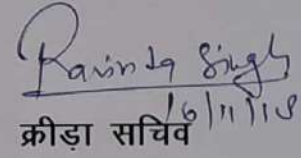 Ravinda Singh
16/11/18
क्रीड़ा सचिव